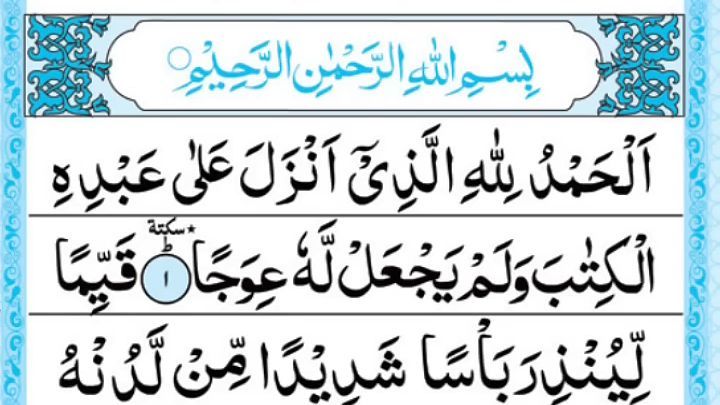 بِسْمِ اللهِ الرَّحْمٰنِ الرَّحِيْمِ
اَلْحَمْدُ لِلّٰهِ الَّذِیْۤ اَنْزَلَ عَلٰی عَبْدِهِ
الْكِتٰبَ وَلَمْ یَجْعَلْ لَّهٗ عِوَجًا ؕ سكتة ١ قَیِّمًا
لِّیُنْذِرَ بَاْسًا شَدِیْدًا مِّنْ لَّدُنْهُ